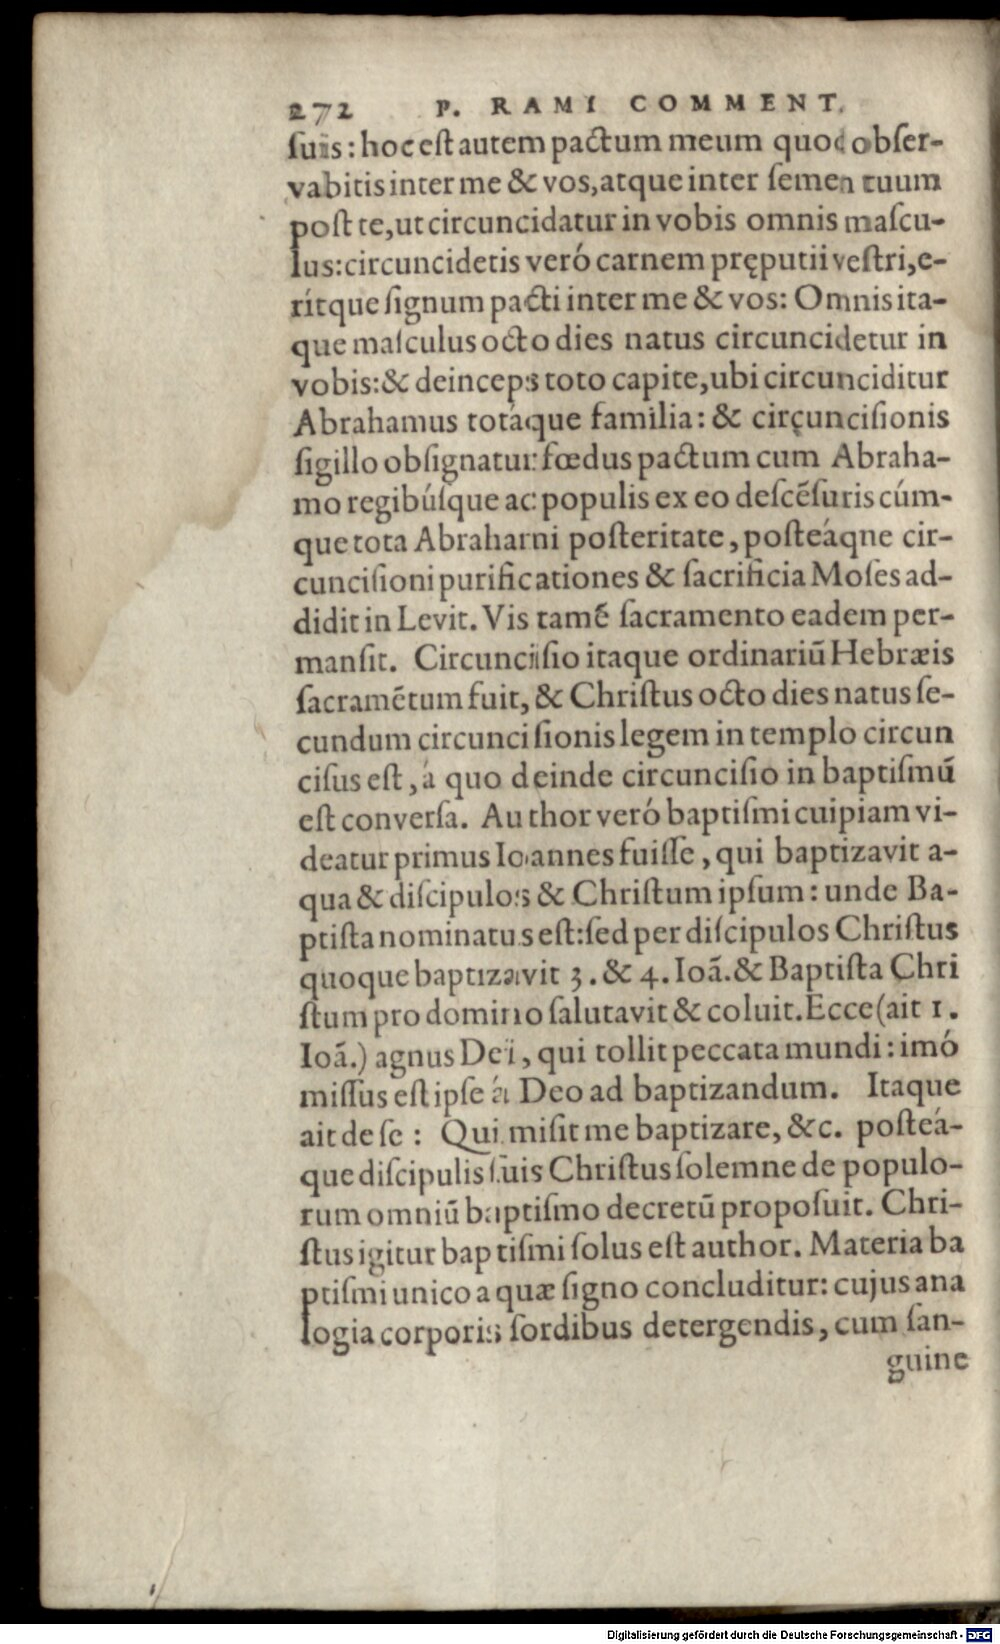 272 P. RAMI COMMENT.
ſuis: hoc eſt autem pactum meum quod obſer-
vabitis inter me & vos, atque inter ſemen tuum
poſt te, ut circuncidatur in vobis omnis maſcu-
lus: circuncidetis veró carnem pręputii veſtri, e-
rítque ſignum pacti inter me & vos: Omnis ita-
que maſculus octo dies natus circuncidetur in
vobis: & deinceps toto capite, ubi circunciditur
Abrahamus totáque familia: & circuncisionis
ſigillo obſignatur fœdus pactum cum Abraha-
mo regibúſque ac populis ex eo deſcẽſuris cúm-
que tota Abrahami poſteritate, poſteáqne cir-
cunciſioni purificationes & ſacrificia Moſes ad-
didit in Levit. Vis tamẽ ſacramento eadem per-
manſit. Circunciſio itaque ordinariũ Hebræis
ſacramẽtum fuit, & Chriſtus octo dies natus ſe-
cundum circunciſionis legem in templo circun
ciſus eſt, á quo deinde circunciſio in baptiſmũ
eſt converſa. Author veró baptiſmi cuipiam vi-
deatur primus Ioannes fuiſſe, qui baptizavit a-
qua & diſcipulos & Chriſtum ipſum: unde Ba-
ptiſta nominatus eſt: ſed per diſcipulos Chriſtus
quoque baptizavit 3. & 4. Ioã. & Baptiſta Chri
ſtum pro domino ſalutavit & coluit. Ecce (ait 1.
Ioã.) agnus Dei, qui tollit peccata mundi: imó
miſſus eſt ipſe á Deo ad baptizandum. Itaque
ait de ſe: Qui miſit me baptizare, &c. poſteá-
que diſcipulis ſuis Chriſtus ſolemne de populo-
rum omniũ baptiſmo decretũ propoſuit. Chri-
ſtus igitur baptiſmi ſolus eſt author. Materia ba
ptiſmi unico aquæ ſigno concluditur: cujus ana
logia corporis ſordibus detergendis, cum ſan-
guine
Digitalisierung gefördert durch die Deutsche Forschungsgemeinschaft - DFG